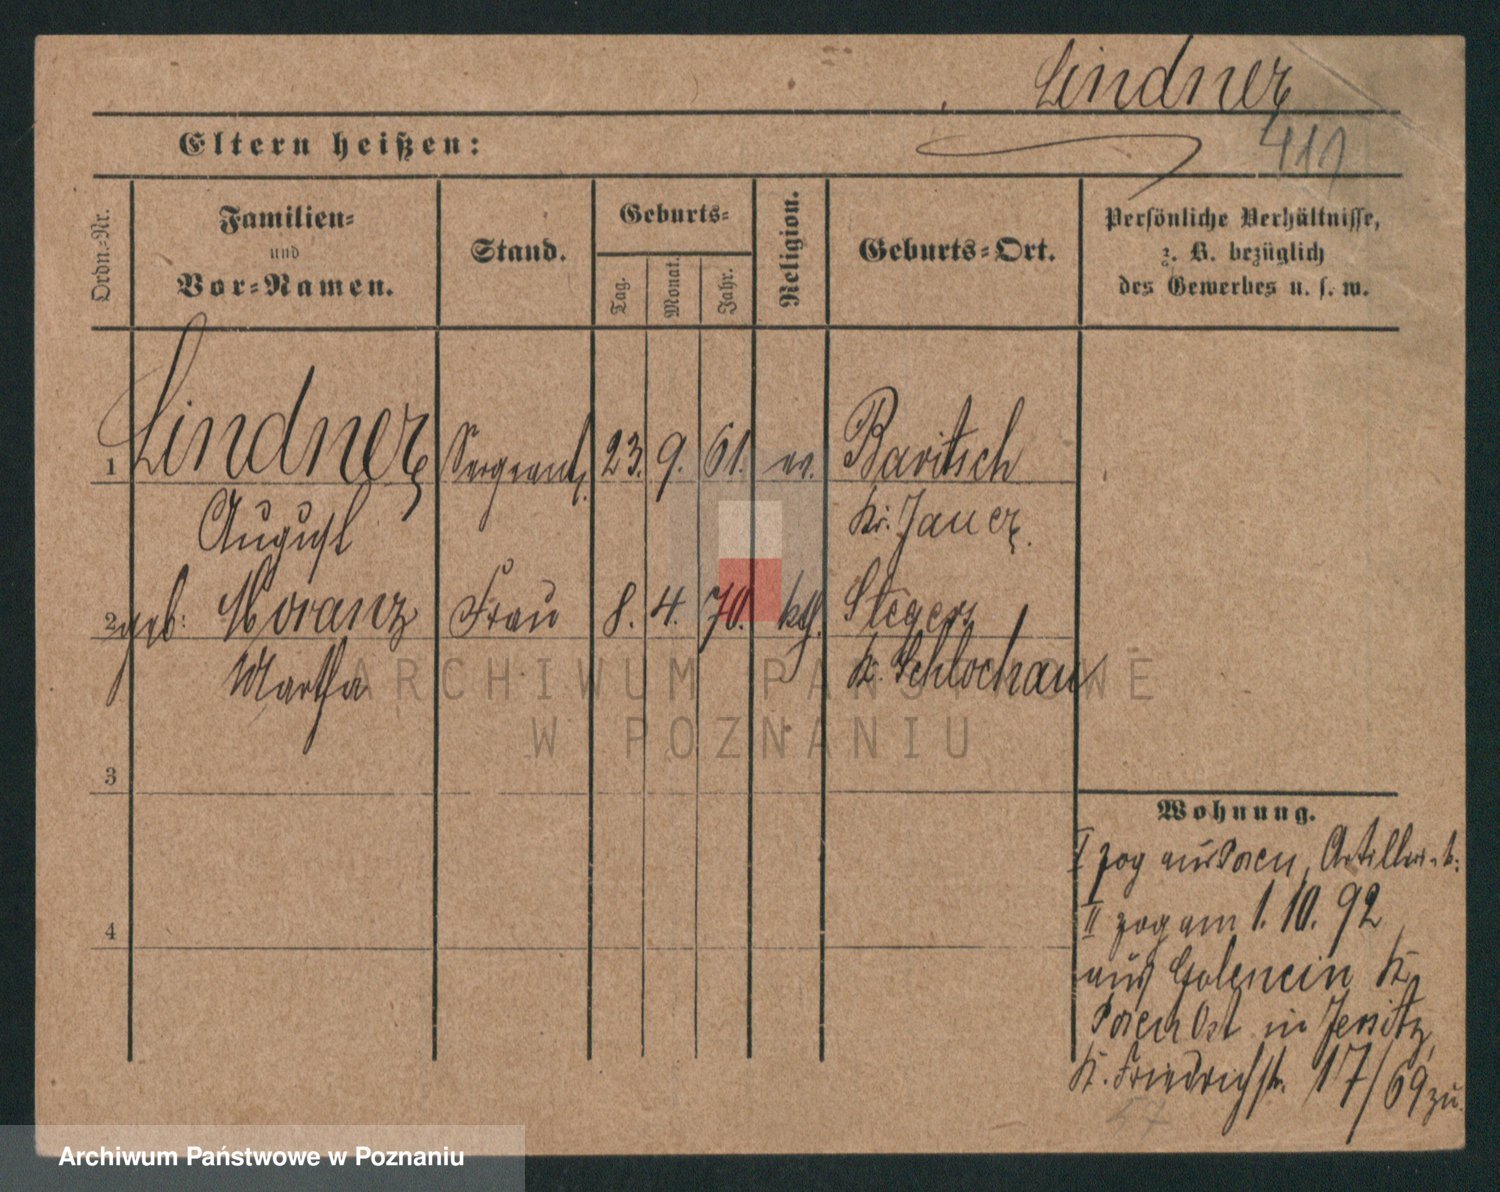 Lindner
411
Eltern heißen:
Ordn.-Nr.
Familien-
und
Vor-Namen.
Stand.
Geburts-
Tag.
Monat.
Jahr.
Religion.
Geburts-Ort.
Persönliche Verhältnisse,
z. B. bezüglich
des Gewerbes u. s. w.
1 Lindner Sergeant. 23. 9. 61. ev. Baritsch
August Kr. Jauer.
2 geb: Moranz Frau 8. 4. 70. kth. Stegers
Martha Kr. Schlochau
3
4
Wohnung.
I zog aus Posen, Artillerie-k:
II zog am 1. 10. 92
aus Golencin Kr.
Posen Ost in Jersitz,
K. Friedrichstr. 17/69 zu.
17
ARCHIWUM PAŃSTWOWE
W POZNANIU
Archiwum Państwowe w Poznaniu